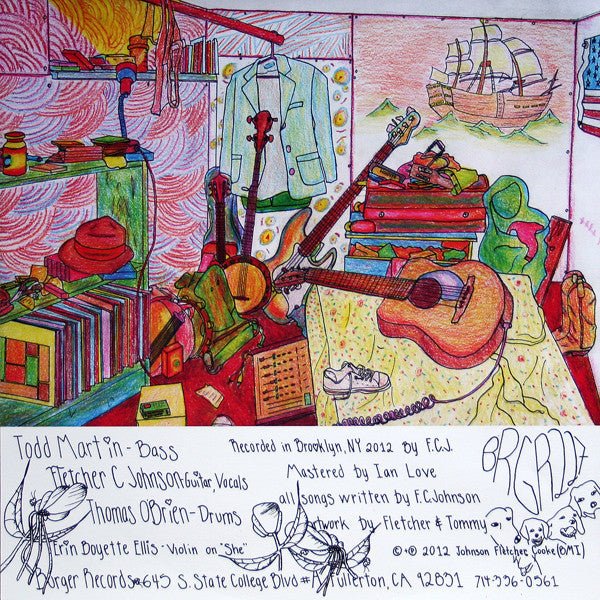 Todd Martin - Bass
Fletcher C Johnson - Guitar, Vocals
Thomas O'Brien - Drums
Erin Boyette Ellis - Violin on "She"
Recorded in Brooklyn, NY 2012 By F.C.J.
Mastered by Ian Love
all songs written by F.C. Johnson
Artwork by Fletcher & Tommy
© + ℗ 2012 Johnson Fletcher Cooke (BMI)
Burger Records • 645 S. State College Blvd #A, Fullerton, CA 92831 714-336-0561